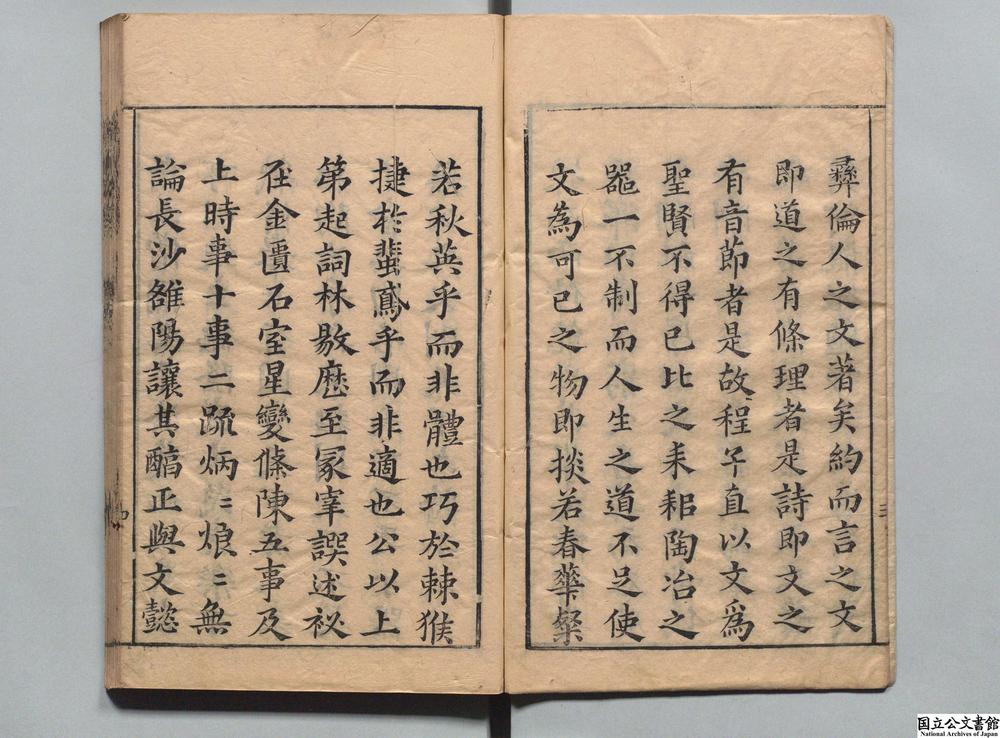 彞倫人之文著矣約而言之文
即道之有條理者是詩即文之
有音節者是故程子直以文爲
聖賢不得已比之耒耜陶冶之
器一不制而人生之道不足使
文為可已之物即掞若春華粲
若秋英乎而非體也巧於棘猴
捷於蜚鳶乎而非適也公以上
第起詞林敭歷至冡宰譔述祕
在金匱石室星變條陳五事及
上時事十事二疏炳〻烺〻無
論長沙雒陽讓其醇正與文懿
國立公文書館
National Archives of Japan